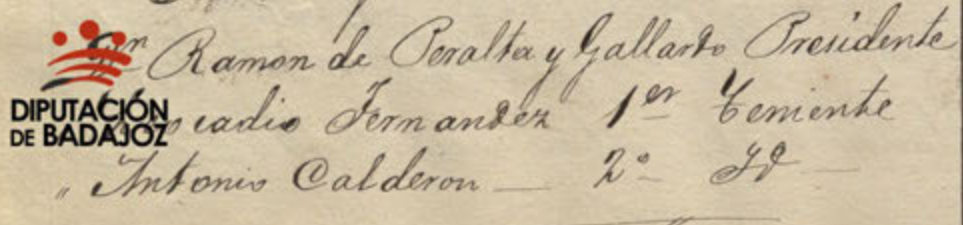 Dn Ramon de Peralta y Gallardo Presidente
DIPUTACIÓN
DE BADAJOZ
Fernandez 1er Teniente
" Antonio Calderon — 2º Id —